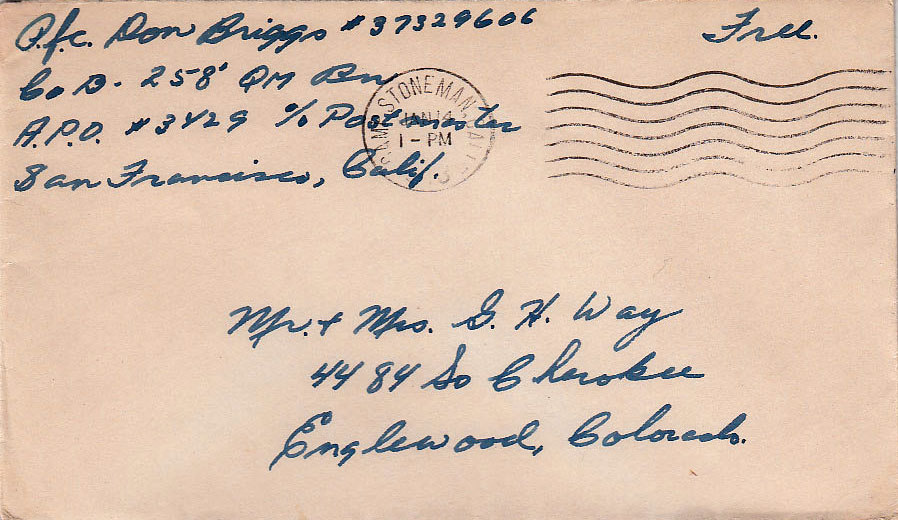 P.f.c. Don Briggs #37329606
Free.
Co B. 258' QM Bn
A.P.O. #3429 c/o Postmaster
San Francisco, Calif.
CAMP STONEMAN, CALIF.
JAN 14
1 - PM
Mr. & Mrs. G. H. Way
4484 So Cherokee
Englewood, Colorado.